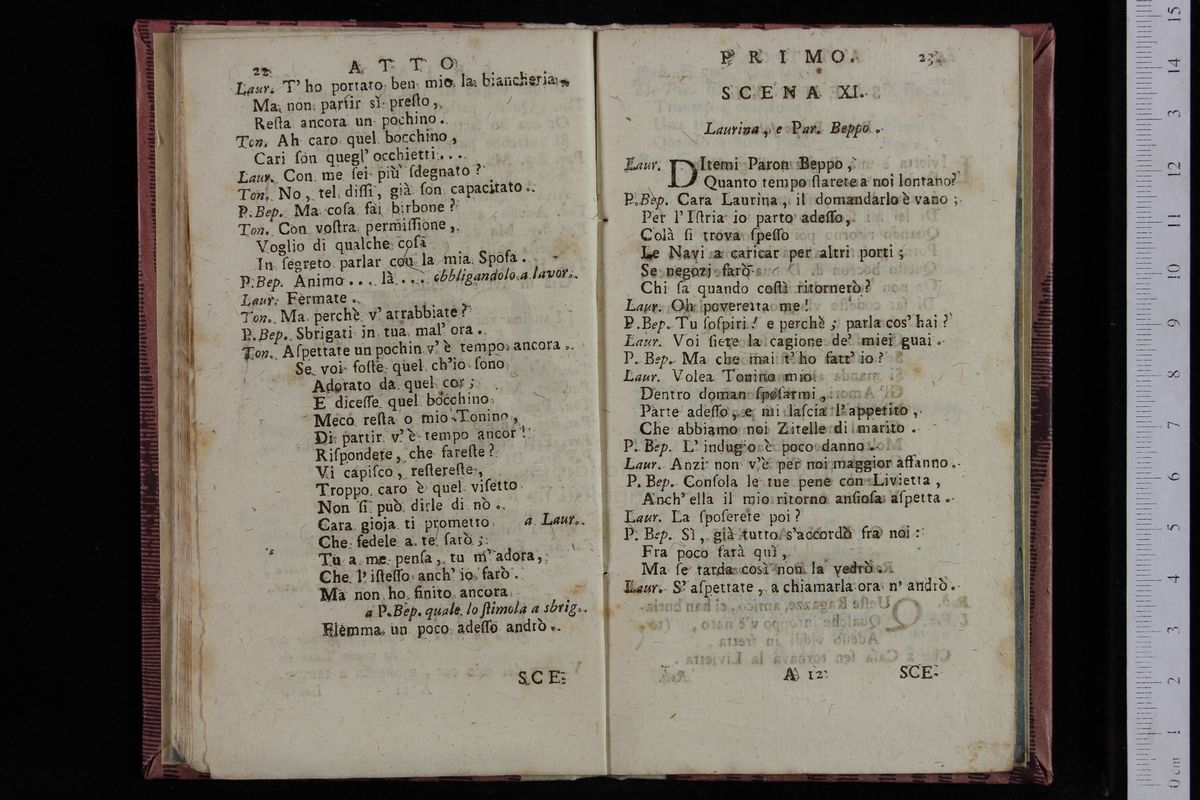 22 ATTO
Laur. T' ho portato ben mio la biancheria,
Ma non partir sì preſto,
Reſta ancora un pochino.
Ton. Ah caro quel bocchino,
Cari ſon quegl' occhietti...
Laur. Con me ſei più ſdegnato?
Ton. No, tel diſſi, già ſon capacitato.
P.Bep. Ma coſa fai birbone?
Ton. Con voſtra permiſſione,
Voglio di qualche coſa
In ſegreto parlar con la mia Spoſa.
P.Bep. Animo.... là.... obbligandolo a lavor.
Laur. Fermate.
Ton. Ma perchè v' arrabbiate?
P.Bep. Sbrigati in tua mal' ora.
Ton. Aſpettate un pochin v' è tempo ancora.
Se voi foſte quel ch'io ſono
Adorato da quel cor;
E diceſſe quel bocchino
Meco reſta o mio Tonino,
Di partir v' è tempo ancor!
Riſpondete, che fareſte?
Vi capiſco, reſtereſte,
Troppo caro è quel viſetto
Non ſi può dirle di nò.
Cara gioja ti prometto a Laur.
Che fedele a te ſarò;
Tu a me penſa, tu m' adora,
Che l' iſteſſo anch' io farò.
Ma non ho finito ancora
a P.Bep. quale lo ſtimola a sbrig.
Flemma un poco adeſſo andrò.
SCE-
PRIMO. 23
SCENA XI.
Laurina, e Par. Beppo.
Laur. DItemi Paron Beppo,
Quanto tempo ſtarete a noi lontano?
P.Bep. Cara Laurina, il domandarlo è vano;
Per l'Iſtria io parto adeſſo,
Colà ſi trova ſpeſſo
Le Navi a caricar per altri porti;
Se negozj farò
Chi ſa quando coſtì ritornerò?
Laur. Oh poveretta me!
P.Bep. Tu ſoſpiri! e perchè; parla cos' hai?
Laur. Voi ſiete la cagione de' miei guai.
P. Bep. Ma che mai t' ho fatt' io?
Laur. Volea Tonino mio
Dentro doman ſpoſarmi,
Parte adeſſo, e mi laſcia l'appetito,
Che abbiamo noi Zitelle di marito.
P. Bep. L' indugio è poco danno.
Laur. Anzi non v'è per noi maggior affanno.
P. Bep. Conſola le tue pene con Livietta,
Anch' ella il mio ritorno anſioſa aſpetta.
Laur. La ſpoſerete poi?
P. Bep. Sì, già tutto s'accordò fra noi:
Fra poco ſarà quì,
Ma ſe tarda così non la vedrò.
Laur. S' aſpettate, a chiamarla ora n' andrò.
A 12 SCE-